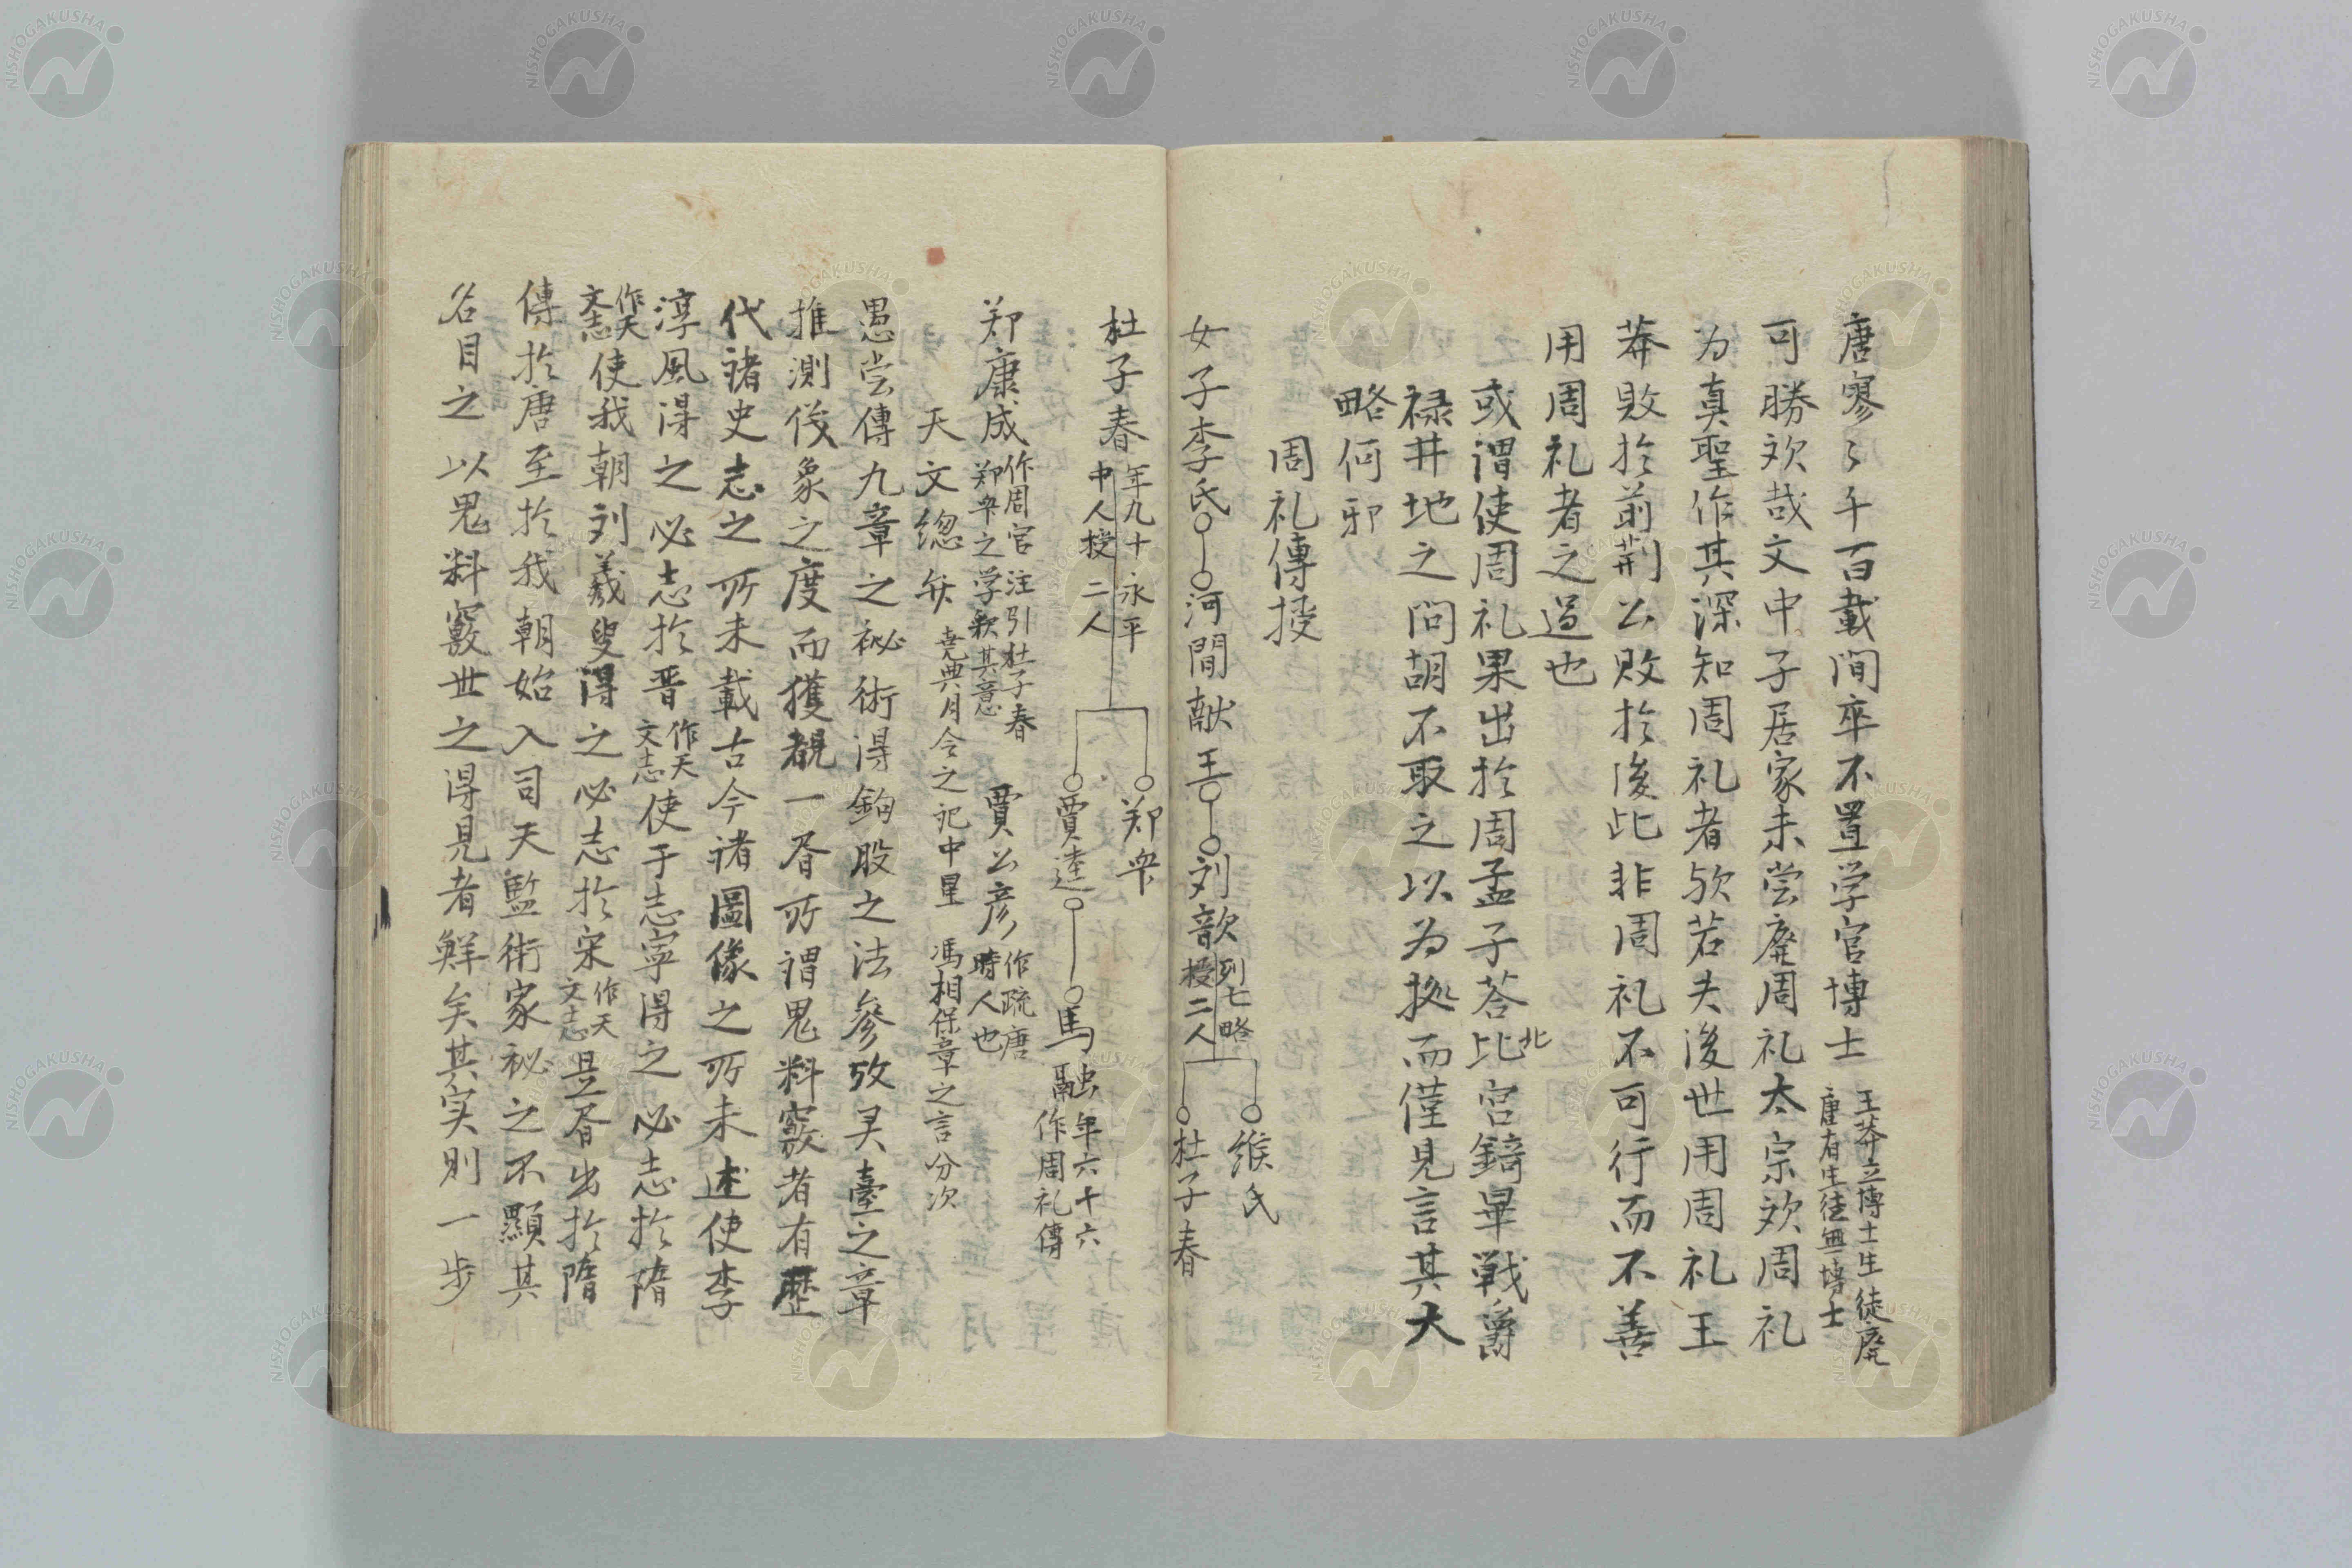 唐寥〻千百載间卒不置学官博士 王莽立博士生徒廃
唐有生徒無博士
可勝欤哉文中子居家未嘗廃周礼太宗欤周礼
为真聖作其深知周礼者欤若夫後世用周礼王
莽敗於前荆公敗於後此非周礼不可行而不善
用周礼者之過也
或謂使周礼果出於周孟子荅北宫錡畢戦爵
禄井地之问胡不取之以为拠而僅見言其大
略何邪
周礼傳授
女子李氏 河間献王 刘歆 列七略
授二人
緱氏
杜子春
杜子春 年九十永平
中人授二人
郑众
賈逵 馬融 年六十六
作周礼傳
郑康成 作周官注引杜子春
郑众之学釈其意
賈公彦 作疏唐
時人也
天文総弁 尭典月令之記中星 馮相保章之言分次
愚尝傳九章之祕術得鉤股之法參攷灵臺之章
推測後象之度而獲覩一書所谓鬼料竅者有歷
代诸史志之所未載古今诸圖像之所未述使李
淳風得之必志於晋 作天
文志
使于志寧得之必志於隋
作天
文志
使我朝刘羲叟得之必志於宋 作天
文志
是書出於隋
傳於唐至於我朝始入司天監術家祕之不顯其
名目之以鬼料竅世之得見者鮮矣其実则一步